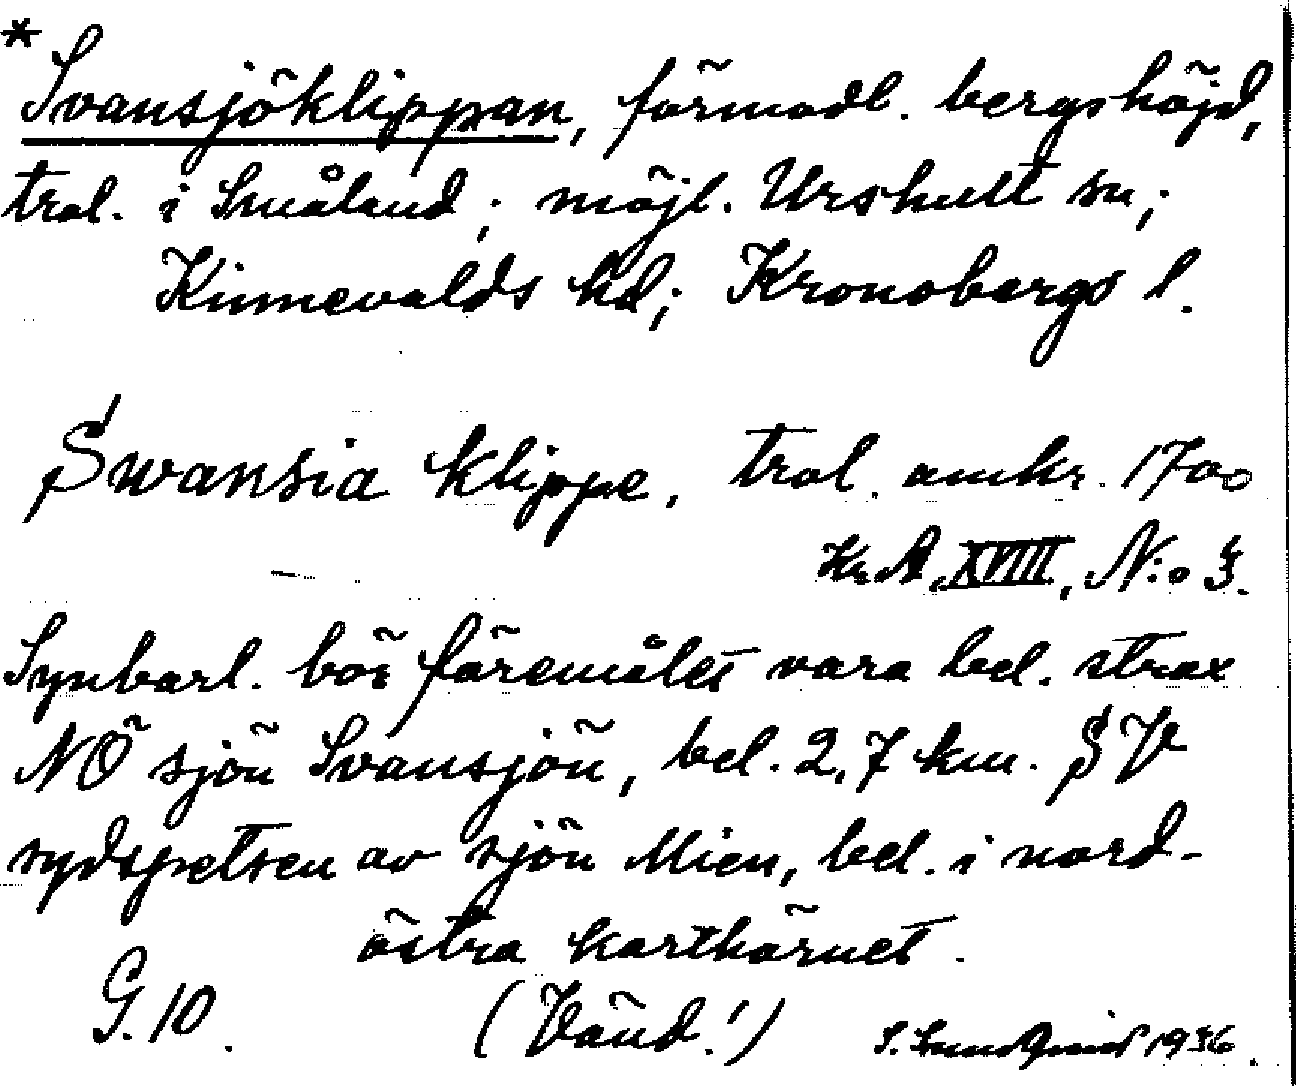 *
Svansjöklippan, förmodl. bergshöjd,
trol. i Småland; möjl. Urshult sn;
Kinnevalds hd; Kronobergs l.
Swansia klippe, trol. omkr. 1700
Kr.A. XVIII, N:o 3.
Synbarl. bör föremålet vara bel. strax
NÖ sjön Svansjön, bel. 2,7 km. SV
sydspetsen av sjön Mien, bel. i nord-
östra karthörnet.
G. 10. (Vänd!) S. Sundqvist 1936.